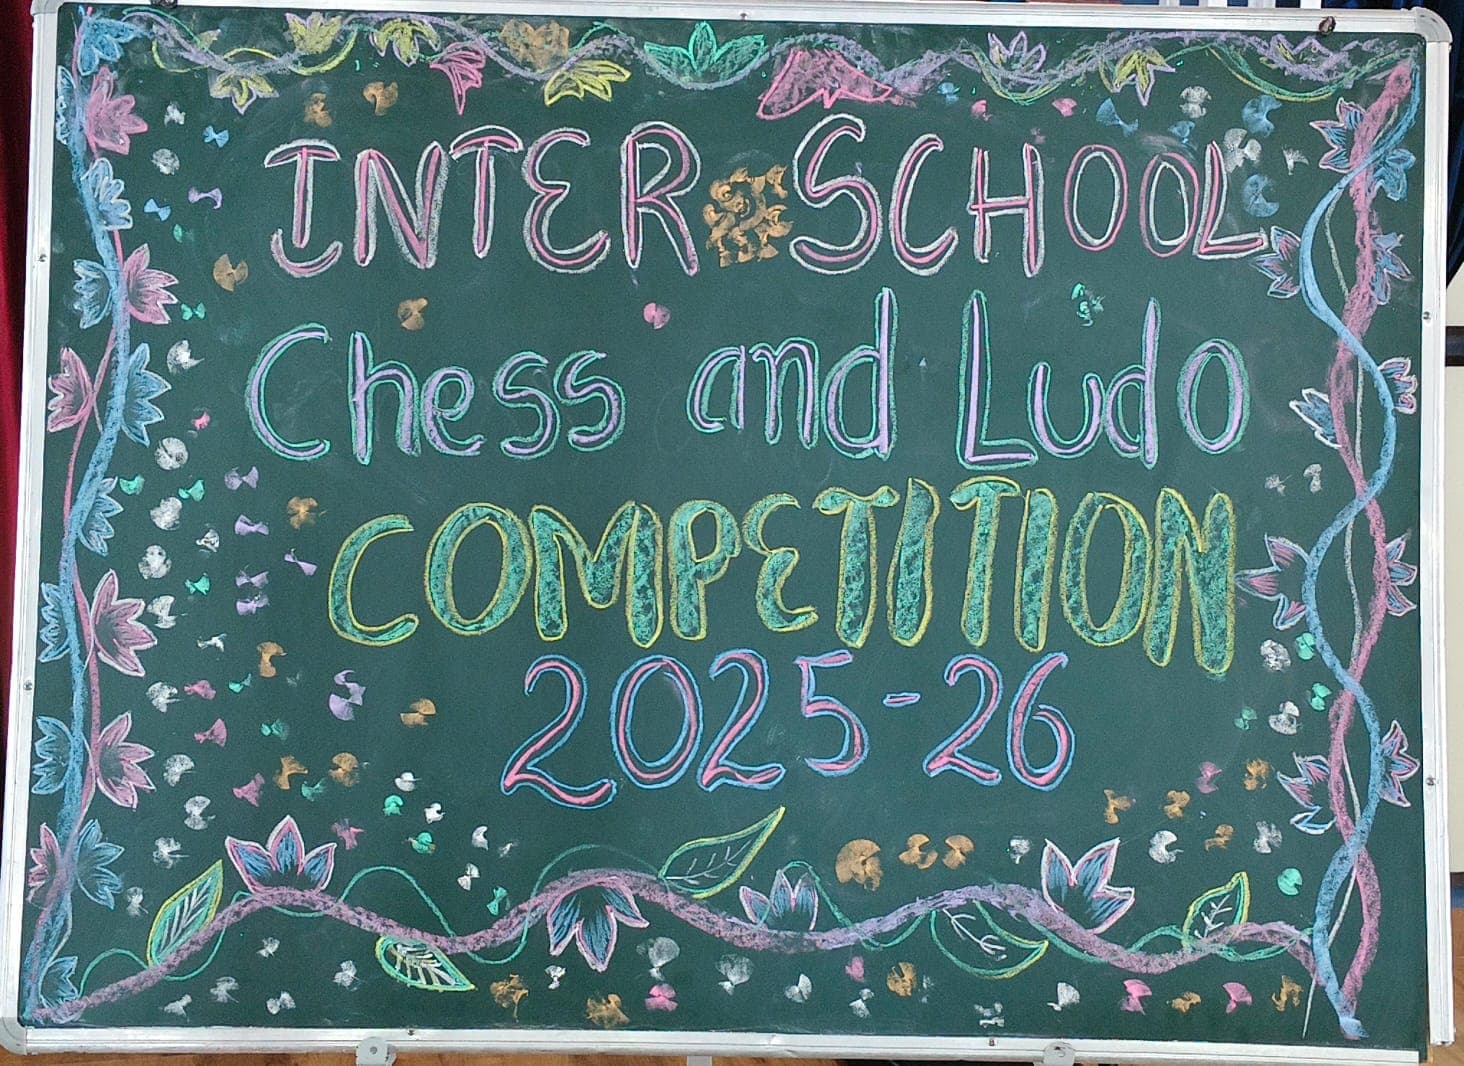 INTER SCHOOL
Chess and Ludo
COMPETITION
2025-26